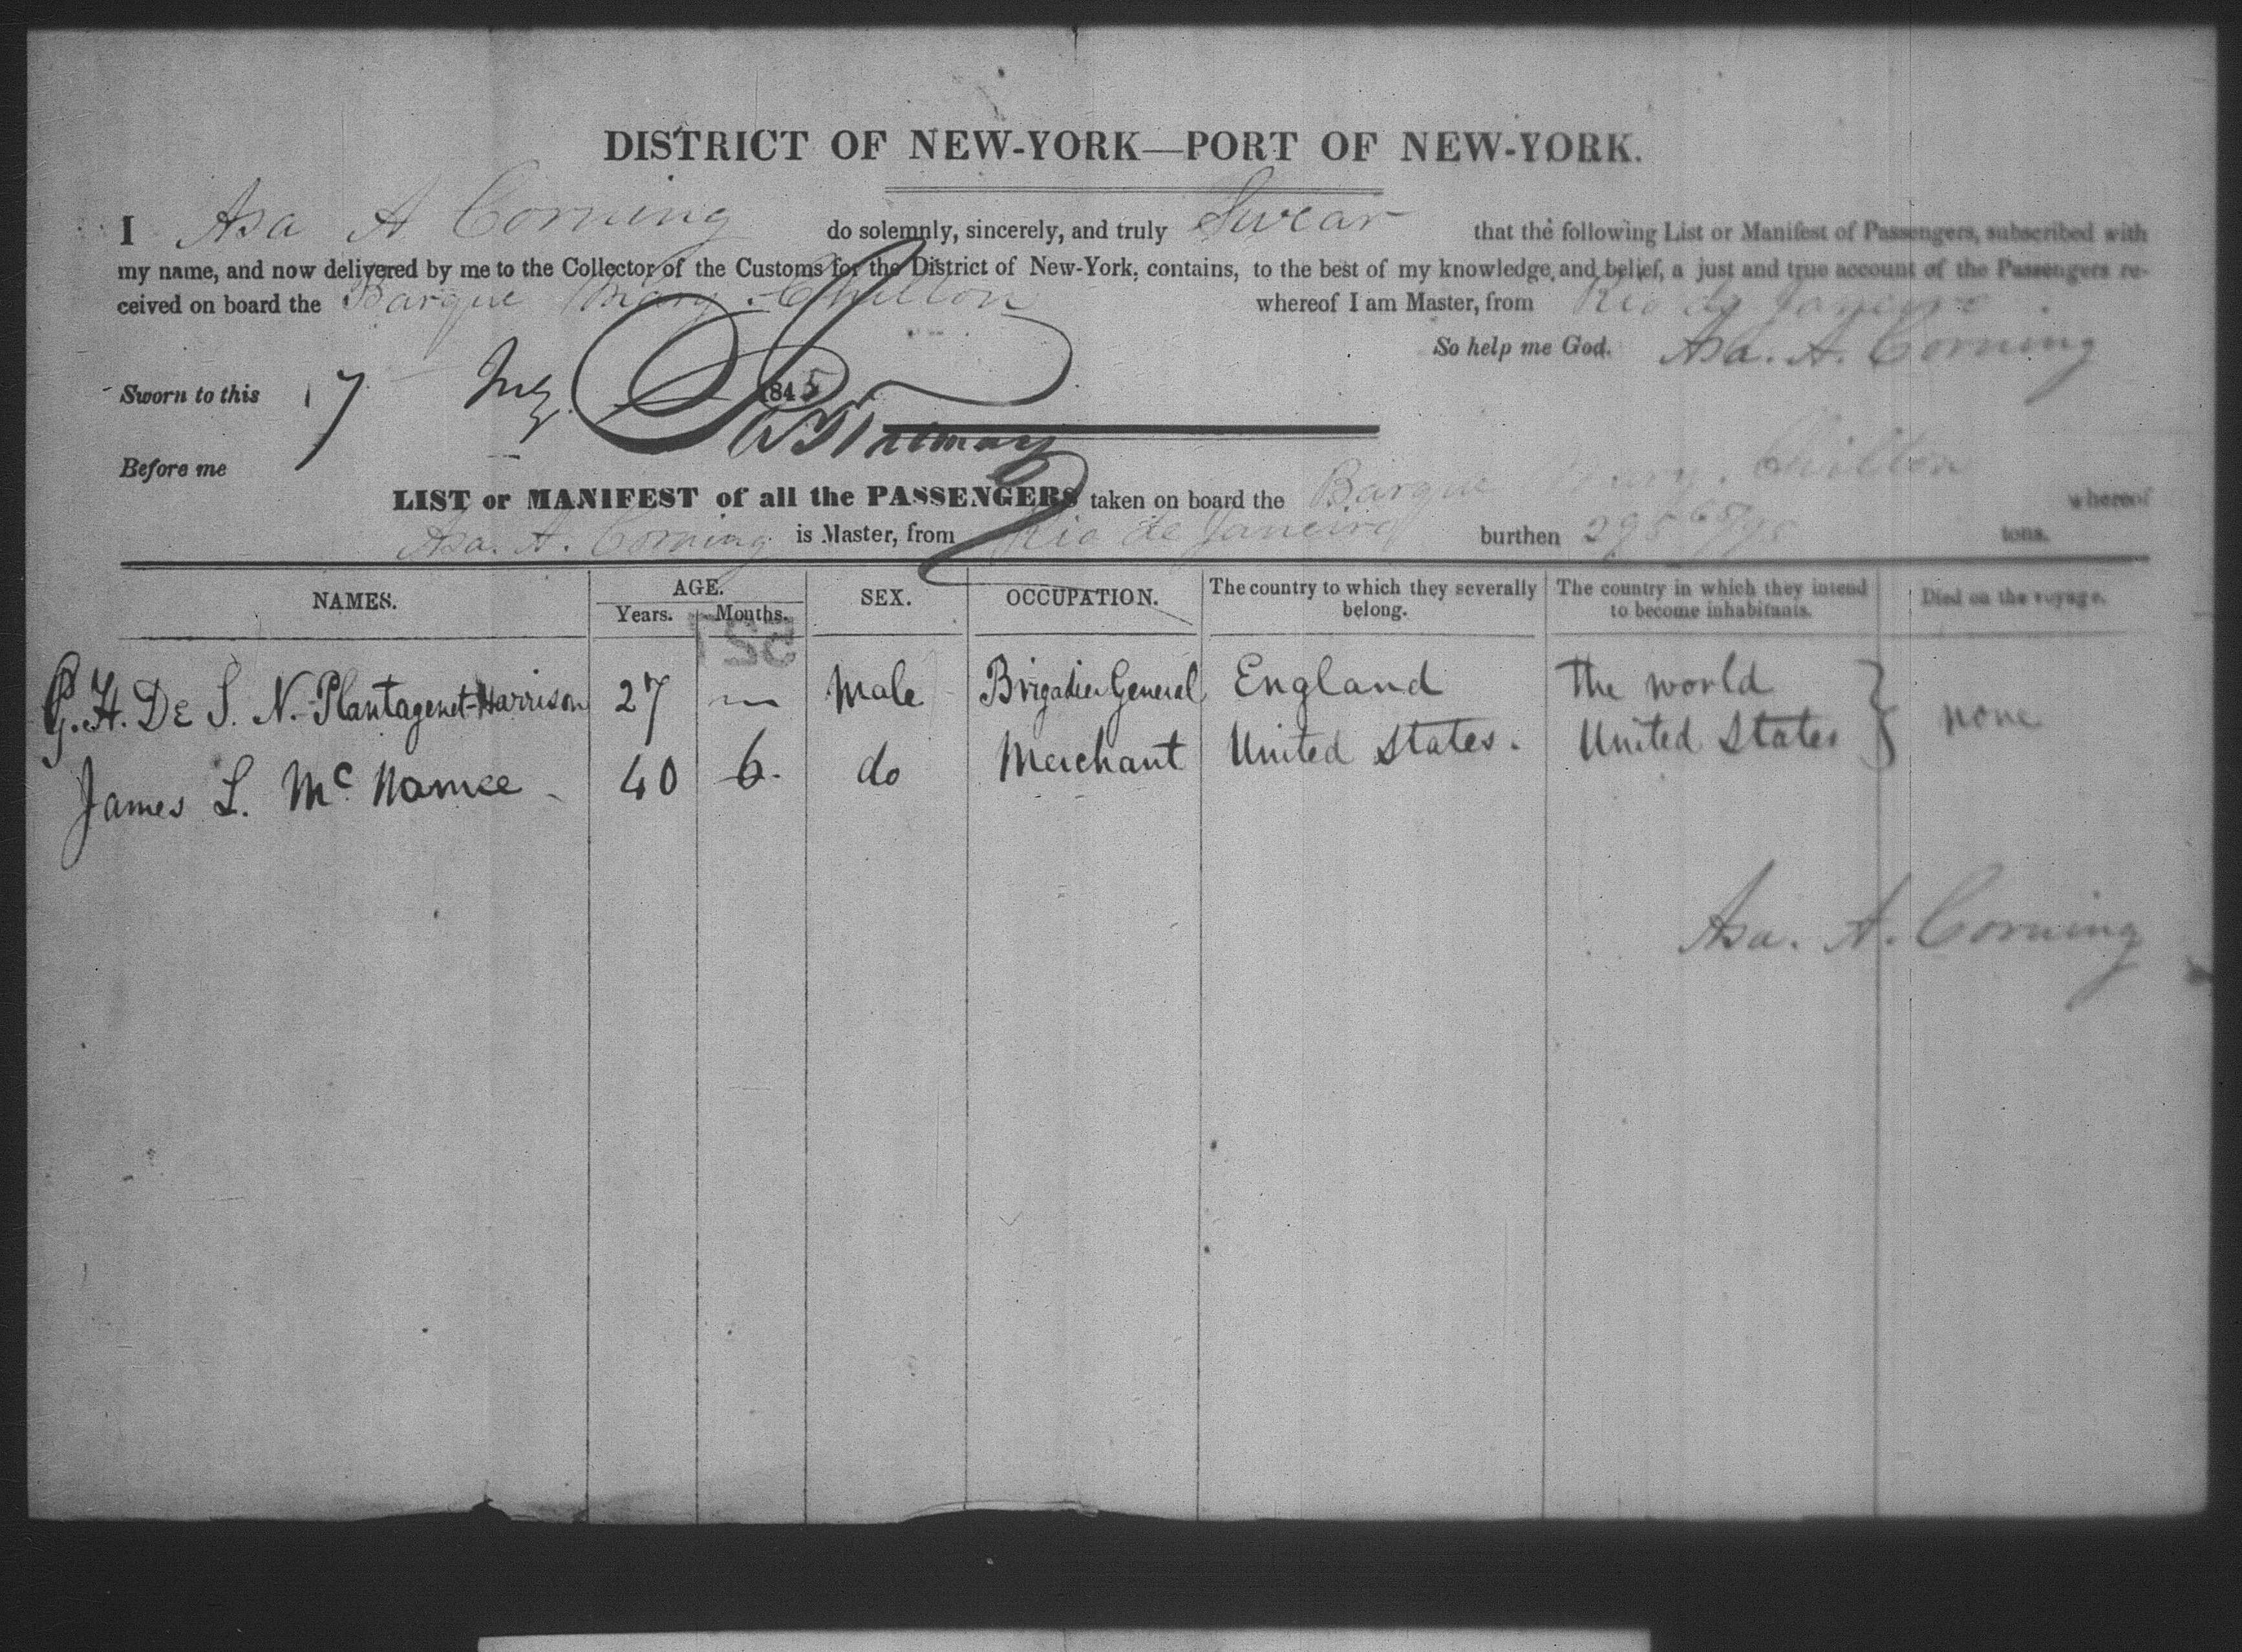 DISTRICT OF NEW-YORK—PORT OF NEW-YORK.
I Asa A Corning do solemnly, sincerely, and truly Swear that the following List or Manifest of Passengers, subscribed with
my name, and now delivered by me to the Collector of the Customs for the District of New-York, contains, to the best of my knowledge and belief, a just and true account of the Passengers re-
ceived on board the Barque Mary Chilton whereof I am Master, from Rio de Janeiro
So help me God. Asa. A. Corning
Sworn to this 17 1845
Before me
LIST or MANIFEST of all the PASSENGERS taken on board the Barque Mary Chilton whereof
Asa. A. Corning is Master, from Rio de Janeiro burthen tons.
NAMES. AGE. Years. Months. SEX. OCCUPATION. The country to which they severally belong. The country in which they intend to become inhabitants. Died on the voyage.
527
G. H. De S. N. Plantagenet-Harrison 27 — Male Brigadier General England The world
James L. Mc Namee 40 6. do Merchant United States. United States none
Asa. A. Corning